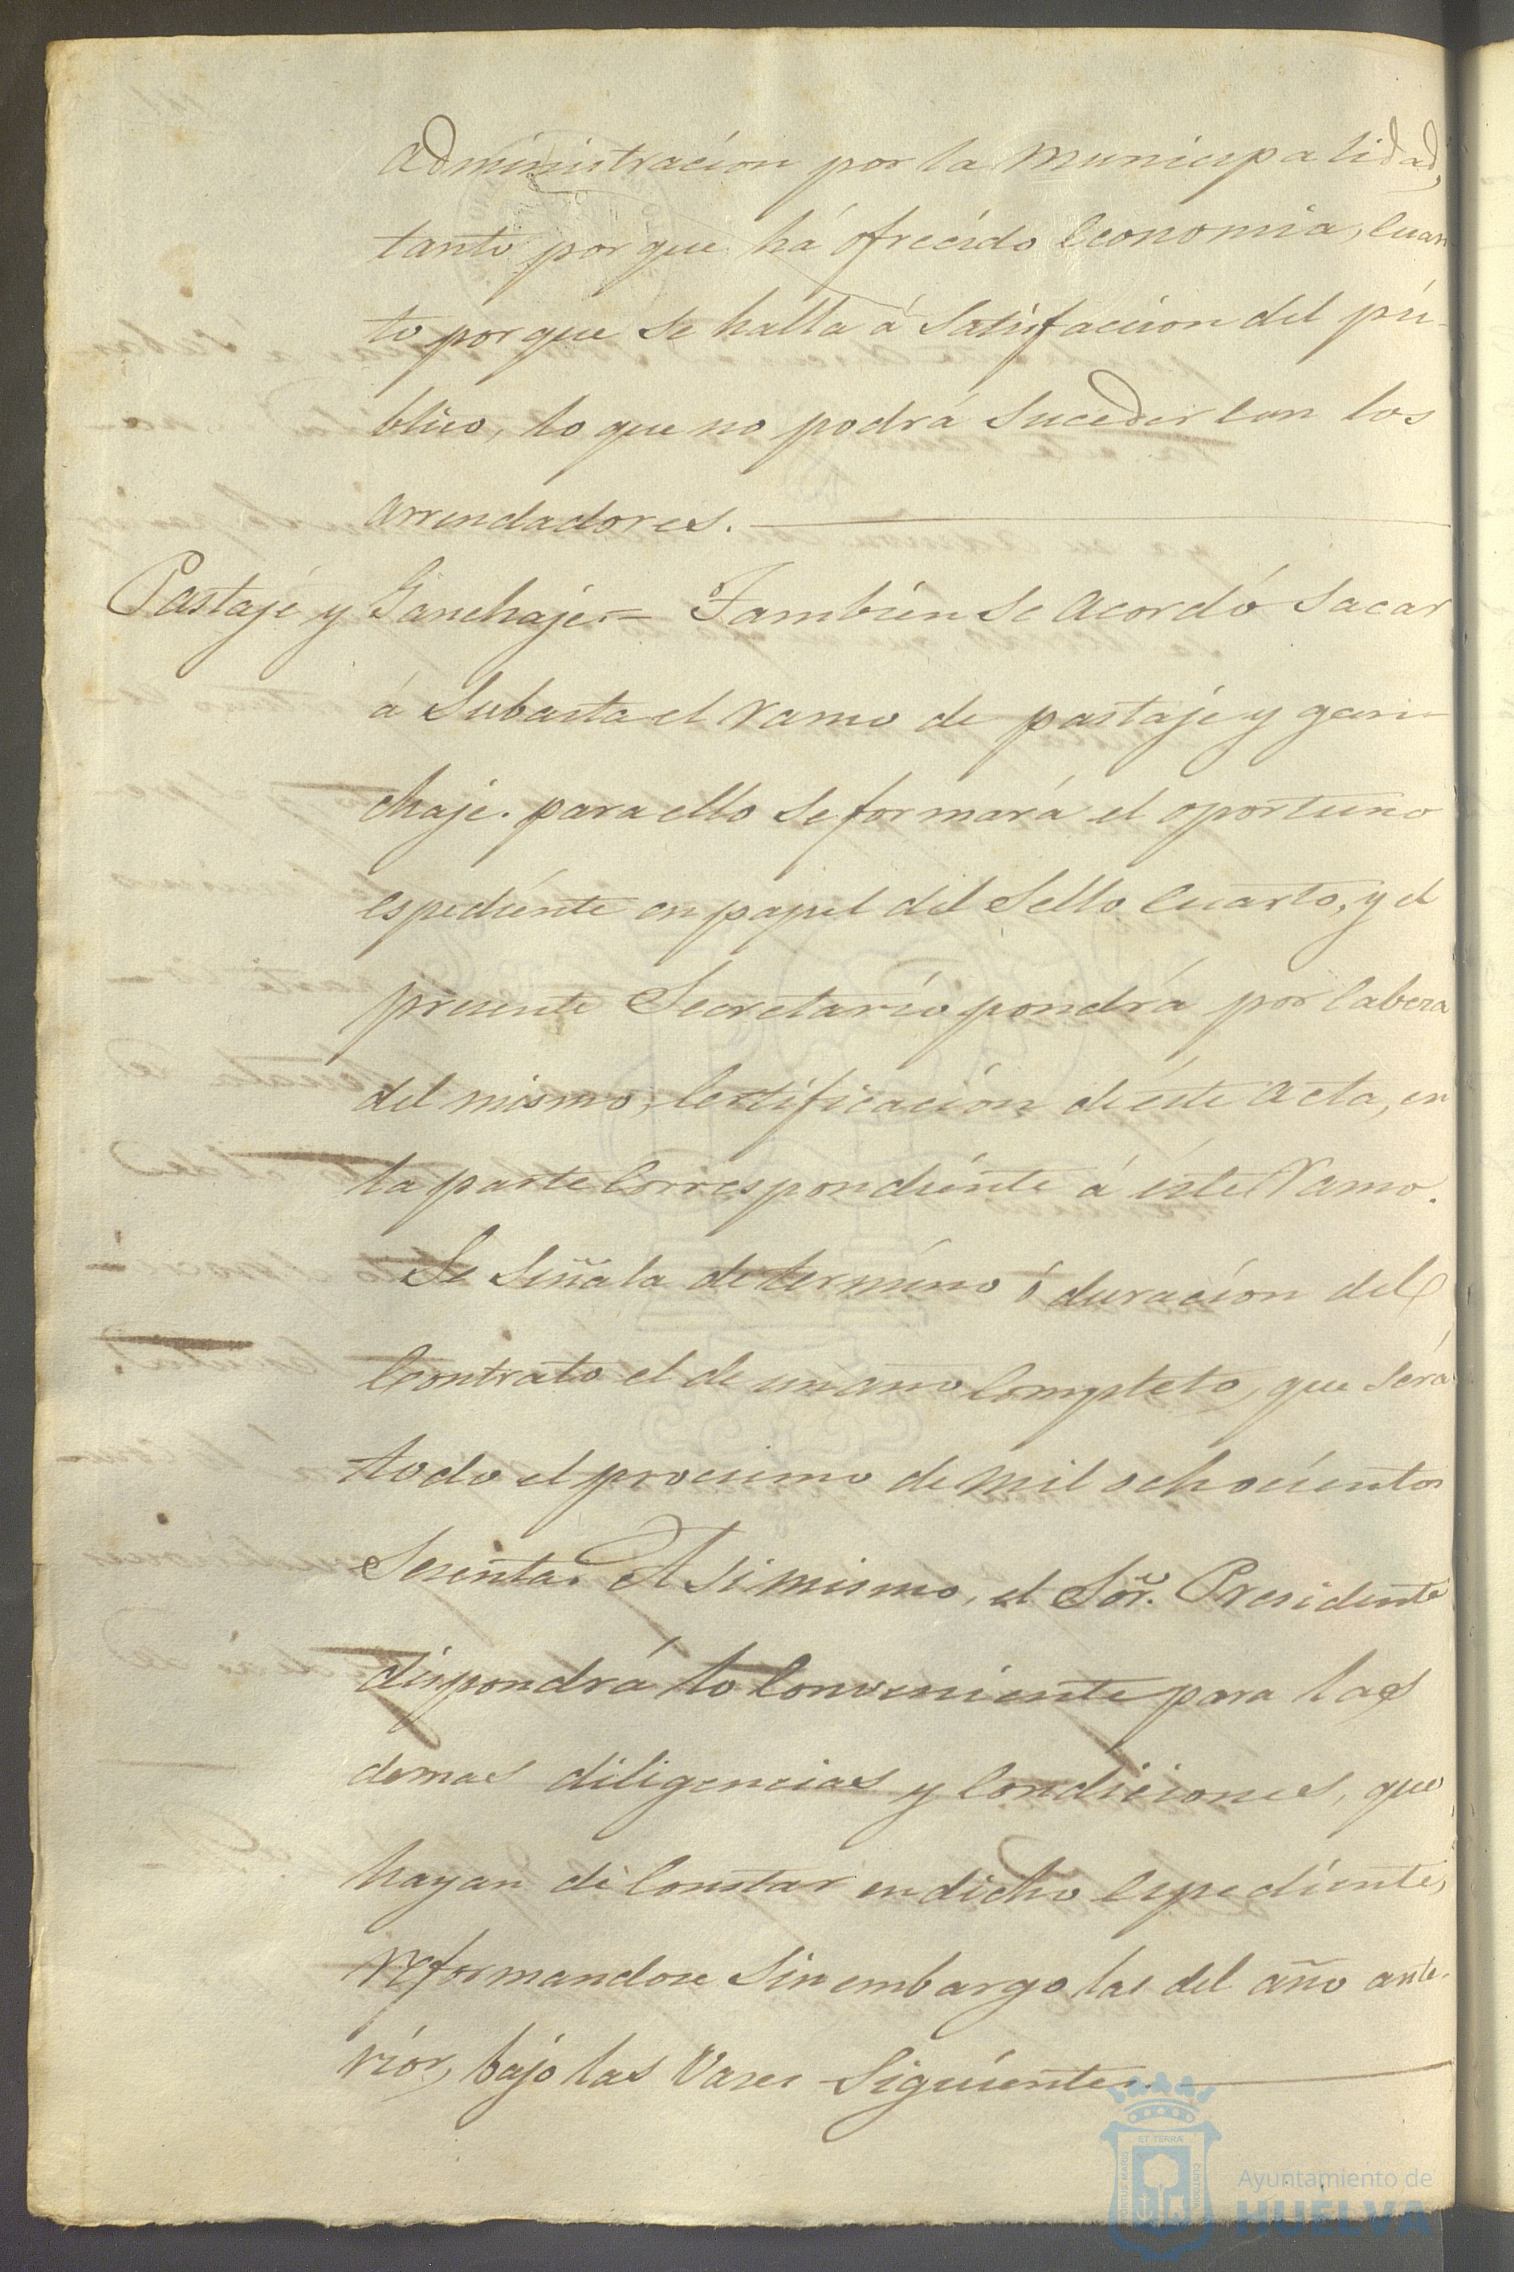 administracion por la Municipalidad,
tanto por que há ofrecido economia, cuan
to porque se halla á satisfaccion del pú-
blico, lo que no podrá suceder con los
arrendadores.
Pastaje y Ganchaje.= Tambien se acordó sacar
á Subasta el ramo de pastaje y gan-
chaje. para ello se formará el oportuno
espediente en papel del Sello Cuarto, y el
presente Secretario pondrá por Cabeza
del mismo, Certificacion de éste acta, en
la parte correspondiente á éste Ramo.
Se Señala de termino ó duracion del
Contrato el de un año completo, que será
todo el procsimo de mil ochocientos
Sesenta. Asi mismo, el Sor. Presidente
dispondrá lo conveniente para las
demas diligencias y condiciones, que
hayan de constar en dicho espediente,
reformandose sin embargo las del año ante-
rior, bajo las Vases Siguientes.
ET TERRÆ
PORTUS MARIS
CUSTODIA
Ayuntamiento de
HUELVA